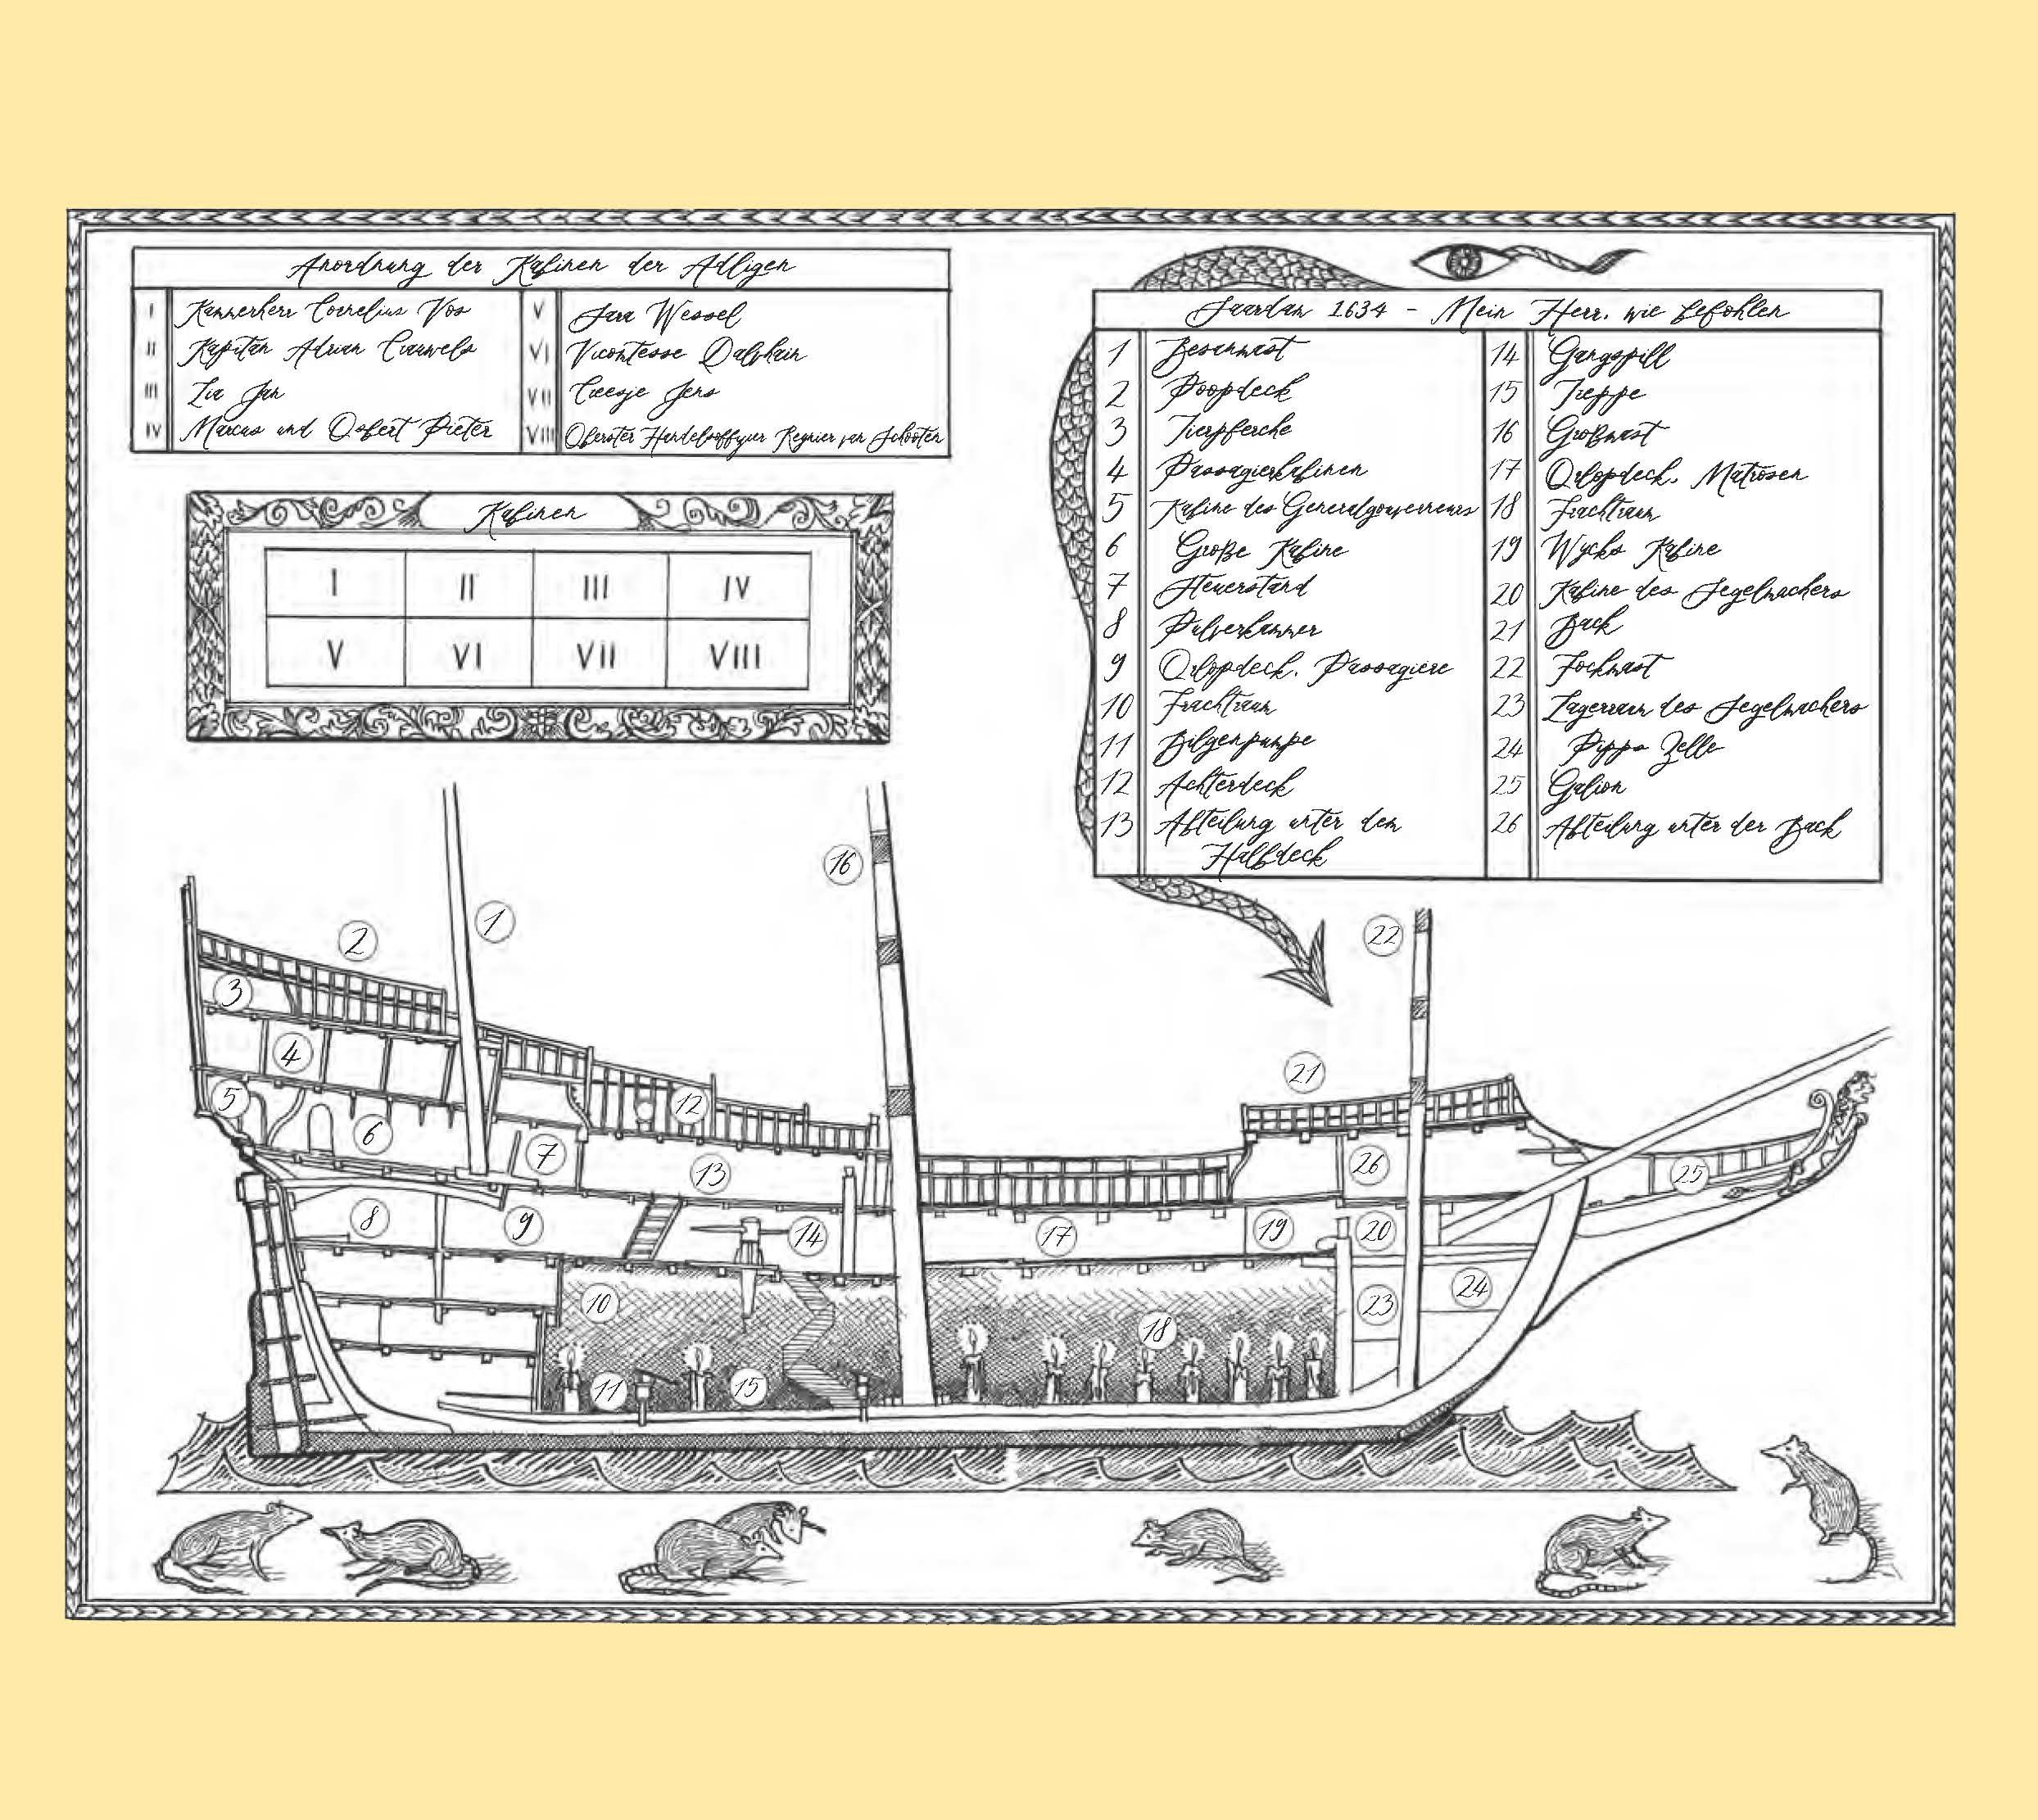 Anordnung der Kabinen der Adligen
I Kammerherr Cornelius Vos
II Kapitän Adrian Crauwels
III Lia Jan
IV Marcus und Osbert Pieter
V Sara Wessel
VI Vicomtesse Dalvhain
VII Creesje Jens
VIII Oberster Handelsoffizier Reynier van Schooten
Kabinen
I II III IV
V VI VII VIII
Saardam 1634 - Mein Herr, wie befohlen
1 Besanmast
2 Poopdeck
3 Tierpferche
4 Passagierkabinen
5 Kabine des Generalgouverneurs
6 Große Kabine
7 Steuerstand
8 Pulverkammer
9 Orlopdeck, Passagiere
10 Frachtraum
11 Bilgenpumpe
12 Achterdeck
13 Abteilung unter dem
Halbdeck
14 Gangspill
15 Treppe
16 Großmast
17 Orlopdeck, Matrosen
18 Frachtraum
19 Wycks Kabine
20 Kabine des Segelmachers
21 Back
22 Fockmast
23 Lagerraum des Segelmachers
24 Pipps Zelle
25 Galion
26 Abteilung unter der Back
16
1
2
22
3
4
21
5
12
6
7
13
26
25
8
9
14
17
19
20
10
24
23
18
11
15